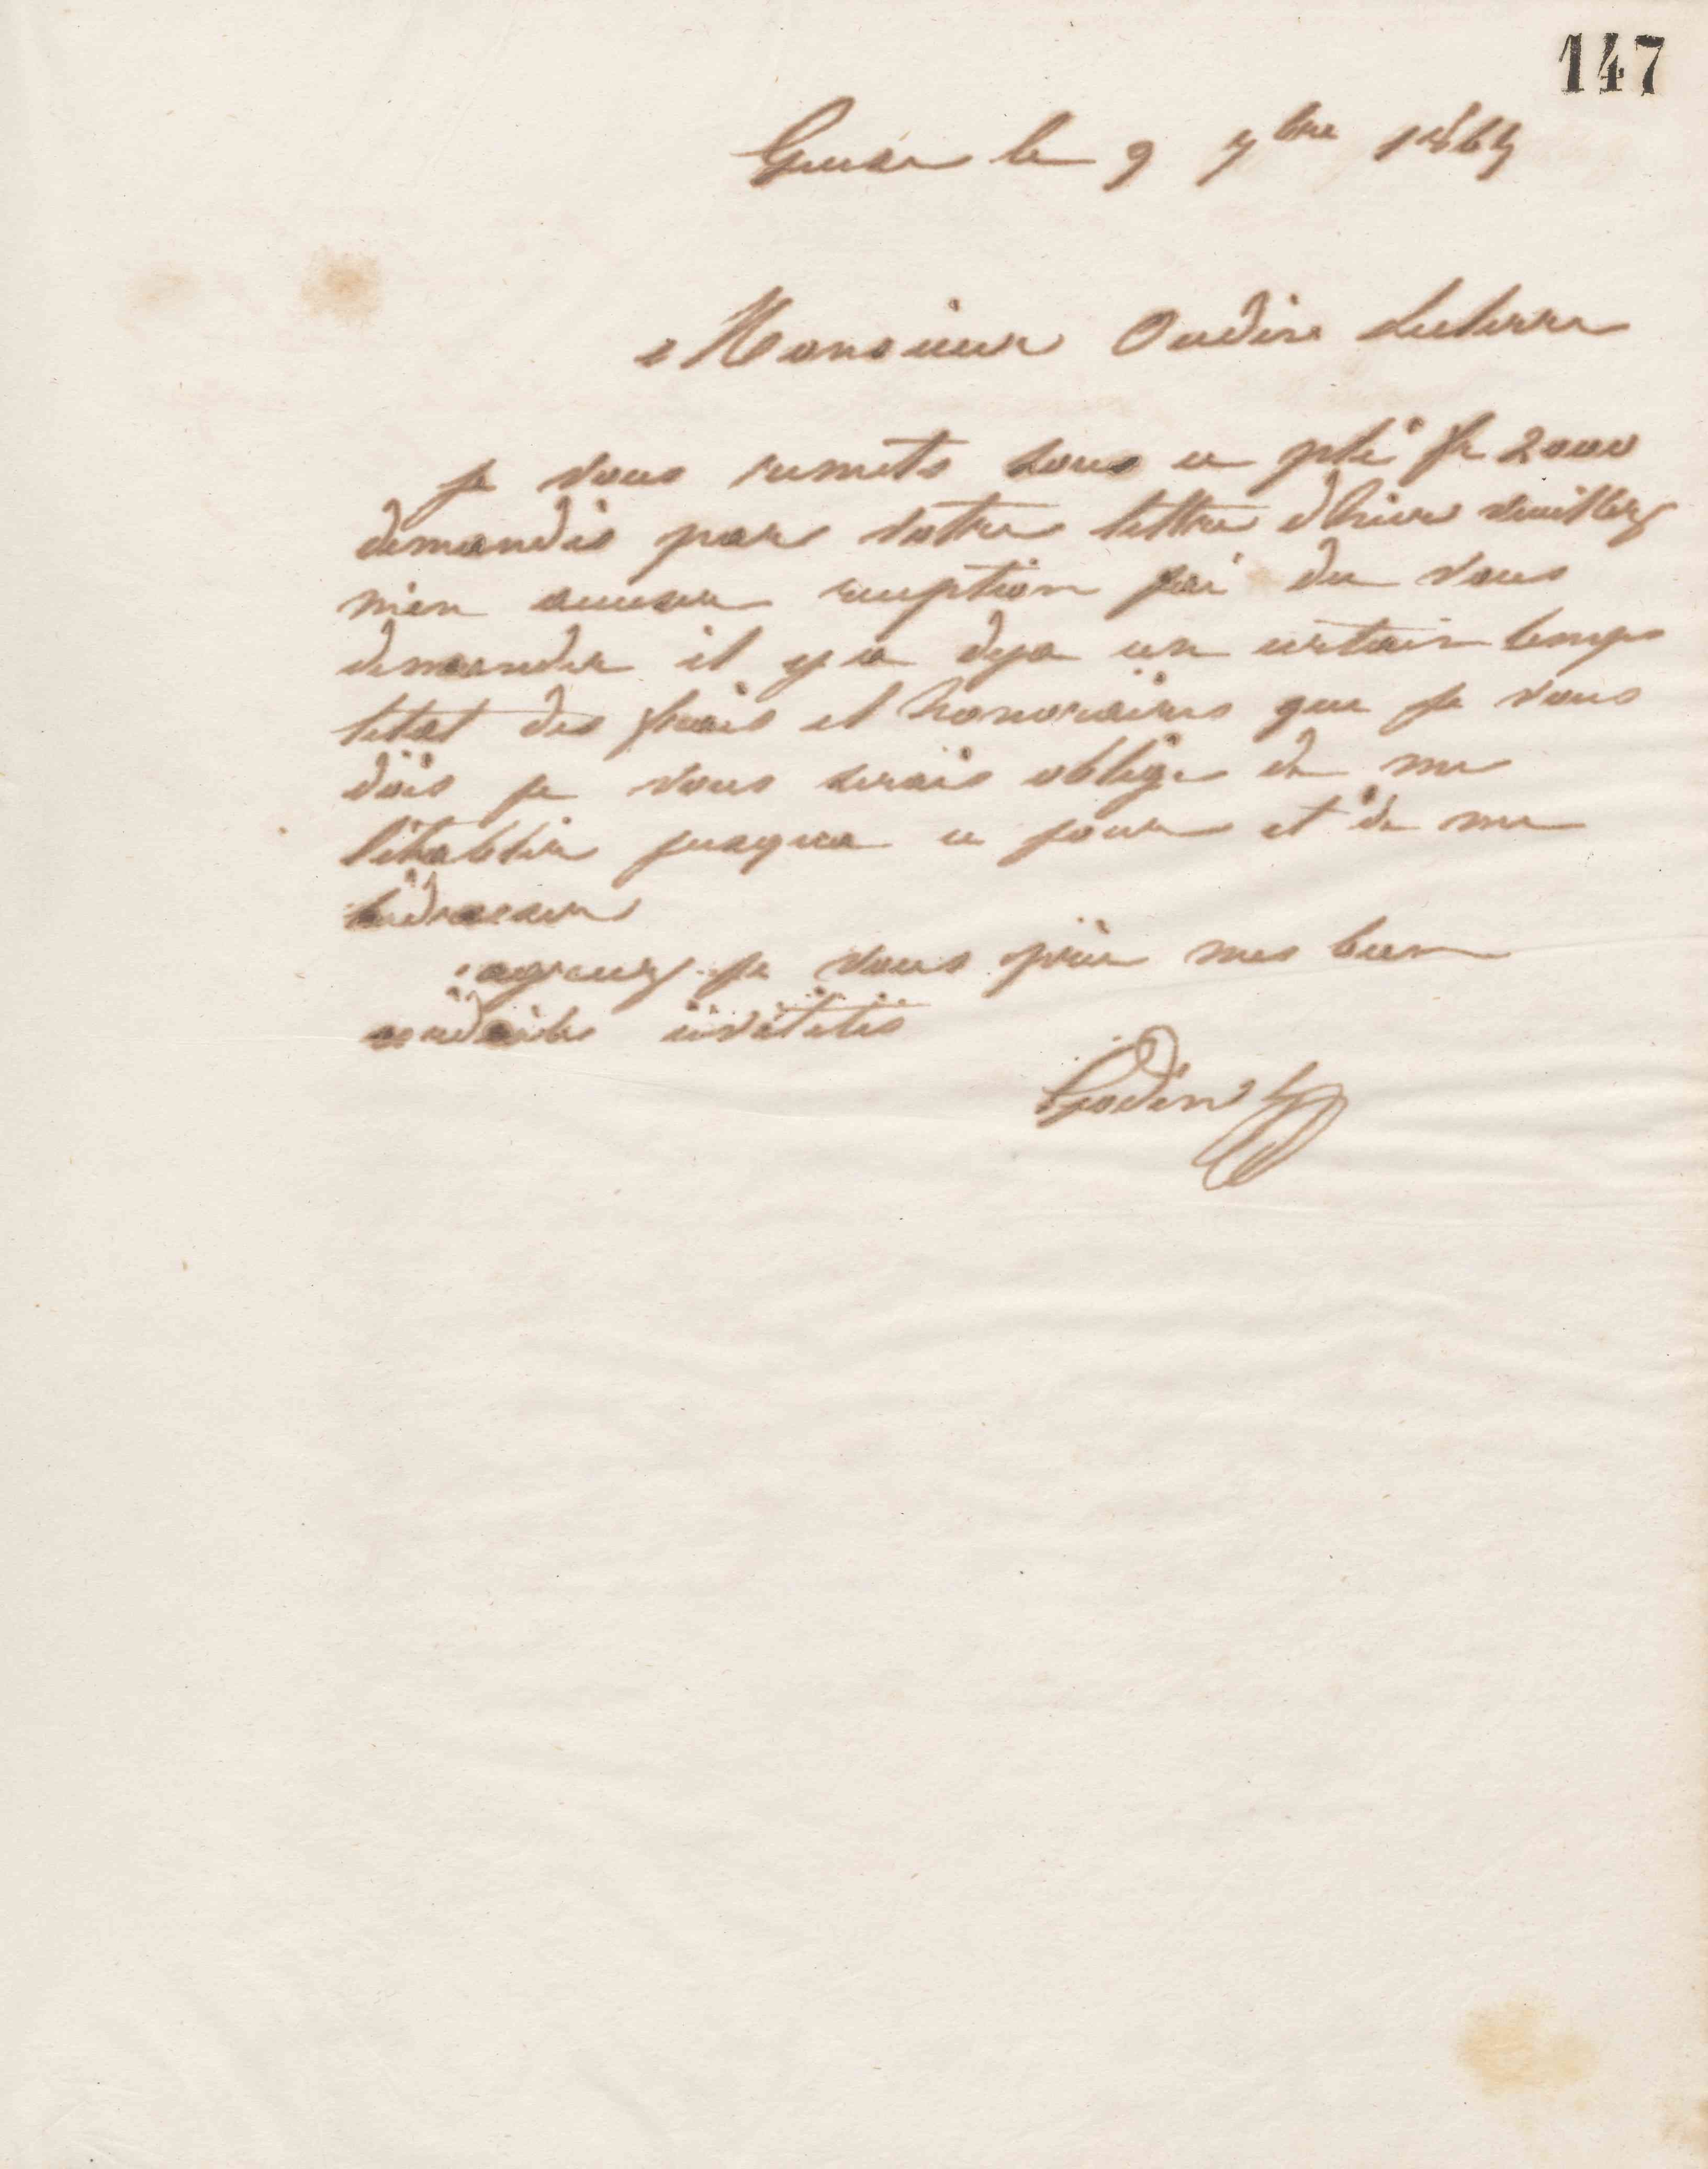 147
Guise le 9 7bre 1865
Monsieur Oudin Leclerre
je vous remets sous ce pli fr 2000
demandés par votre lettre dhier veuillez
men accuser reception jai du vous
demander il y a deja un certain temps
letat des frais et honoraires que je vous
dois je vous serais obligé de me
létablir jusqua ce jour et de me
ladresser
agreez je vous prie mes bien
cordiales civilités
Godin